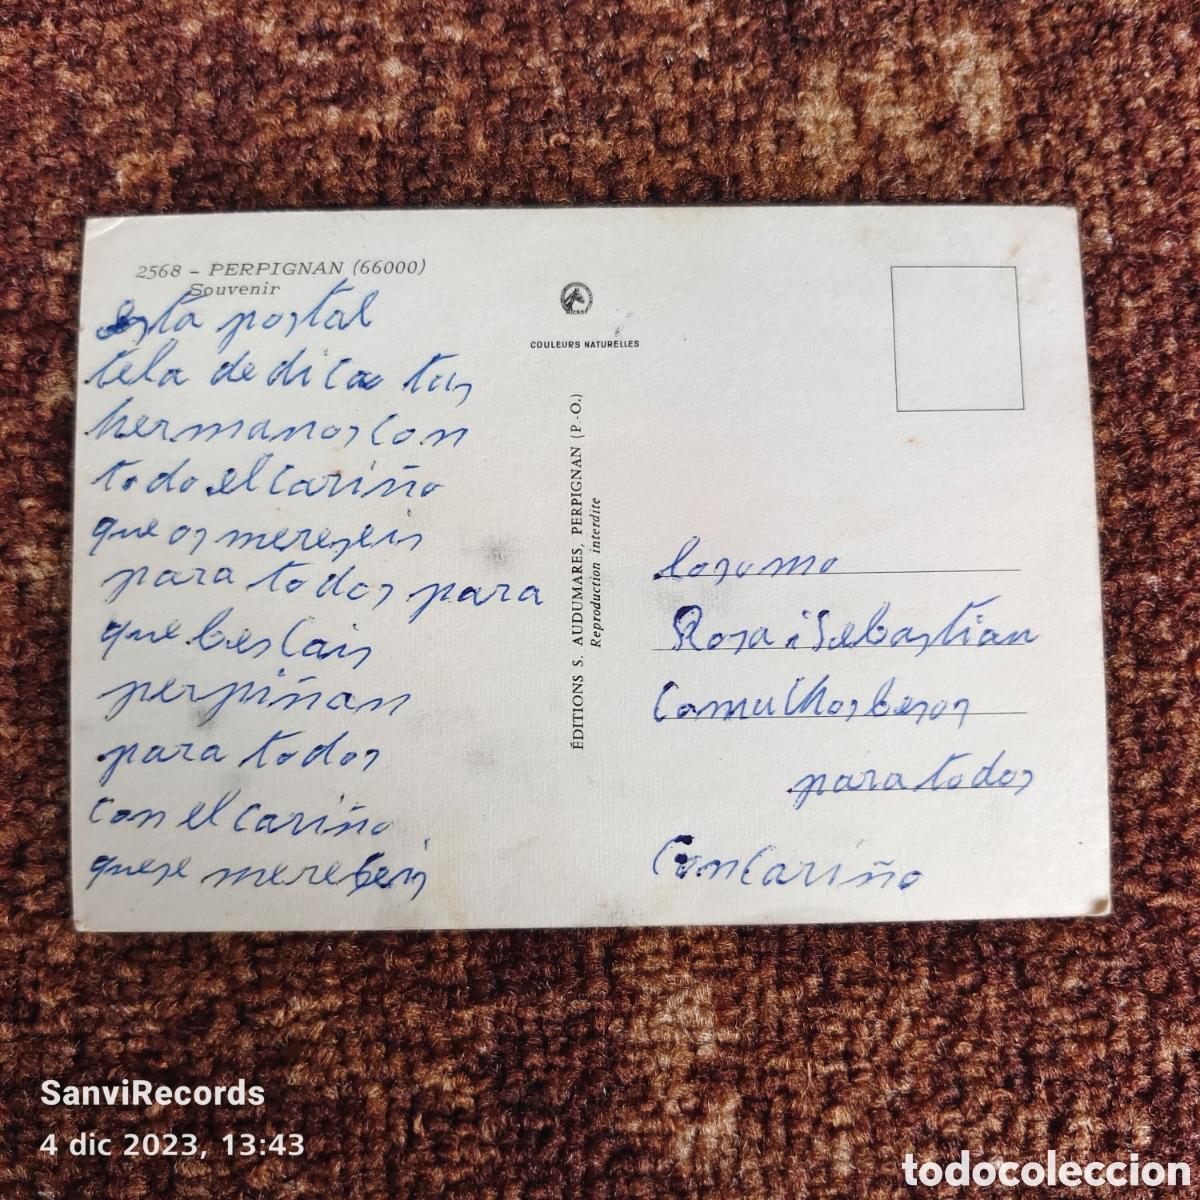 2568 - PERPIGNAN (66000)
Souvenir
esta postal
tela dedica tus
hermanos con
todo el cariño
que os mereseis
para todos para
que bescais
perpiñan
para todos
con el cariño
quese merebeis
MICRO
COULEURS NATURELLES
ÉDITIONS S. AUDUMARES, PERPIGNAN (P.-O.)
Reproduction interdite
Rosa i Sebastian
besos
para todos
Con Cariño
SanviRecords
4 dic 2023, 13:43
todocoleccion